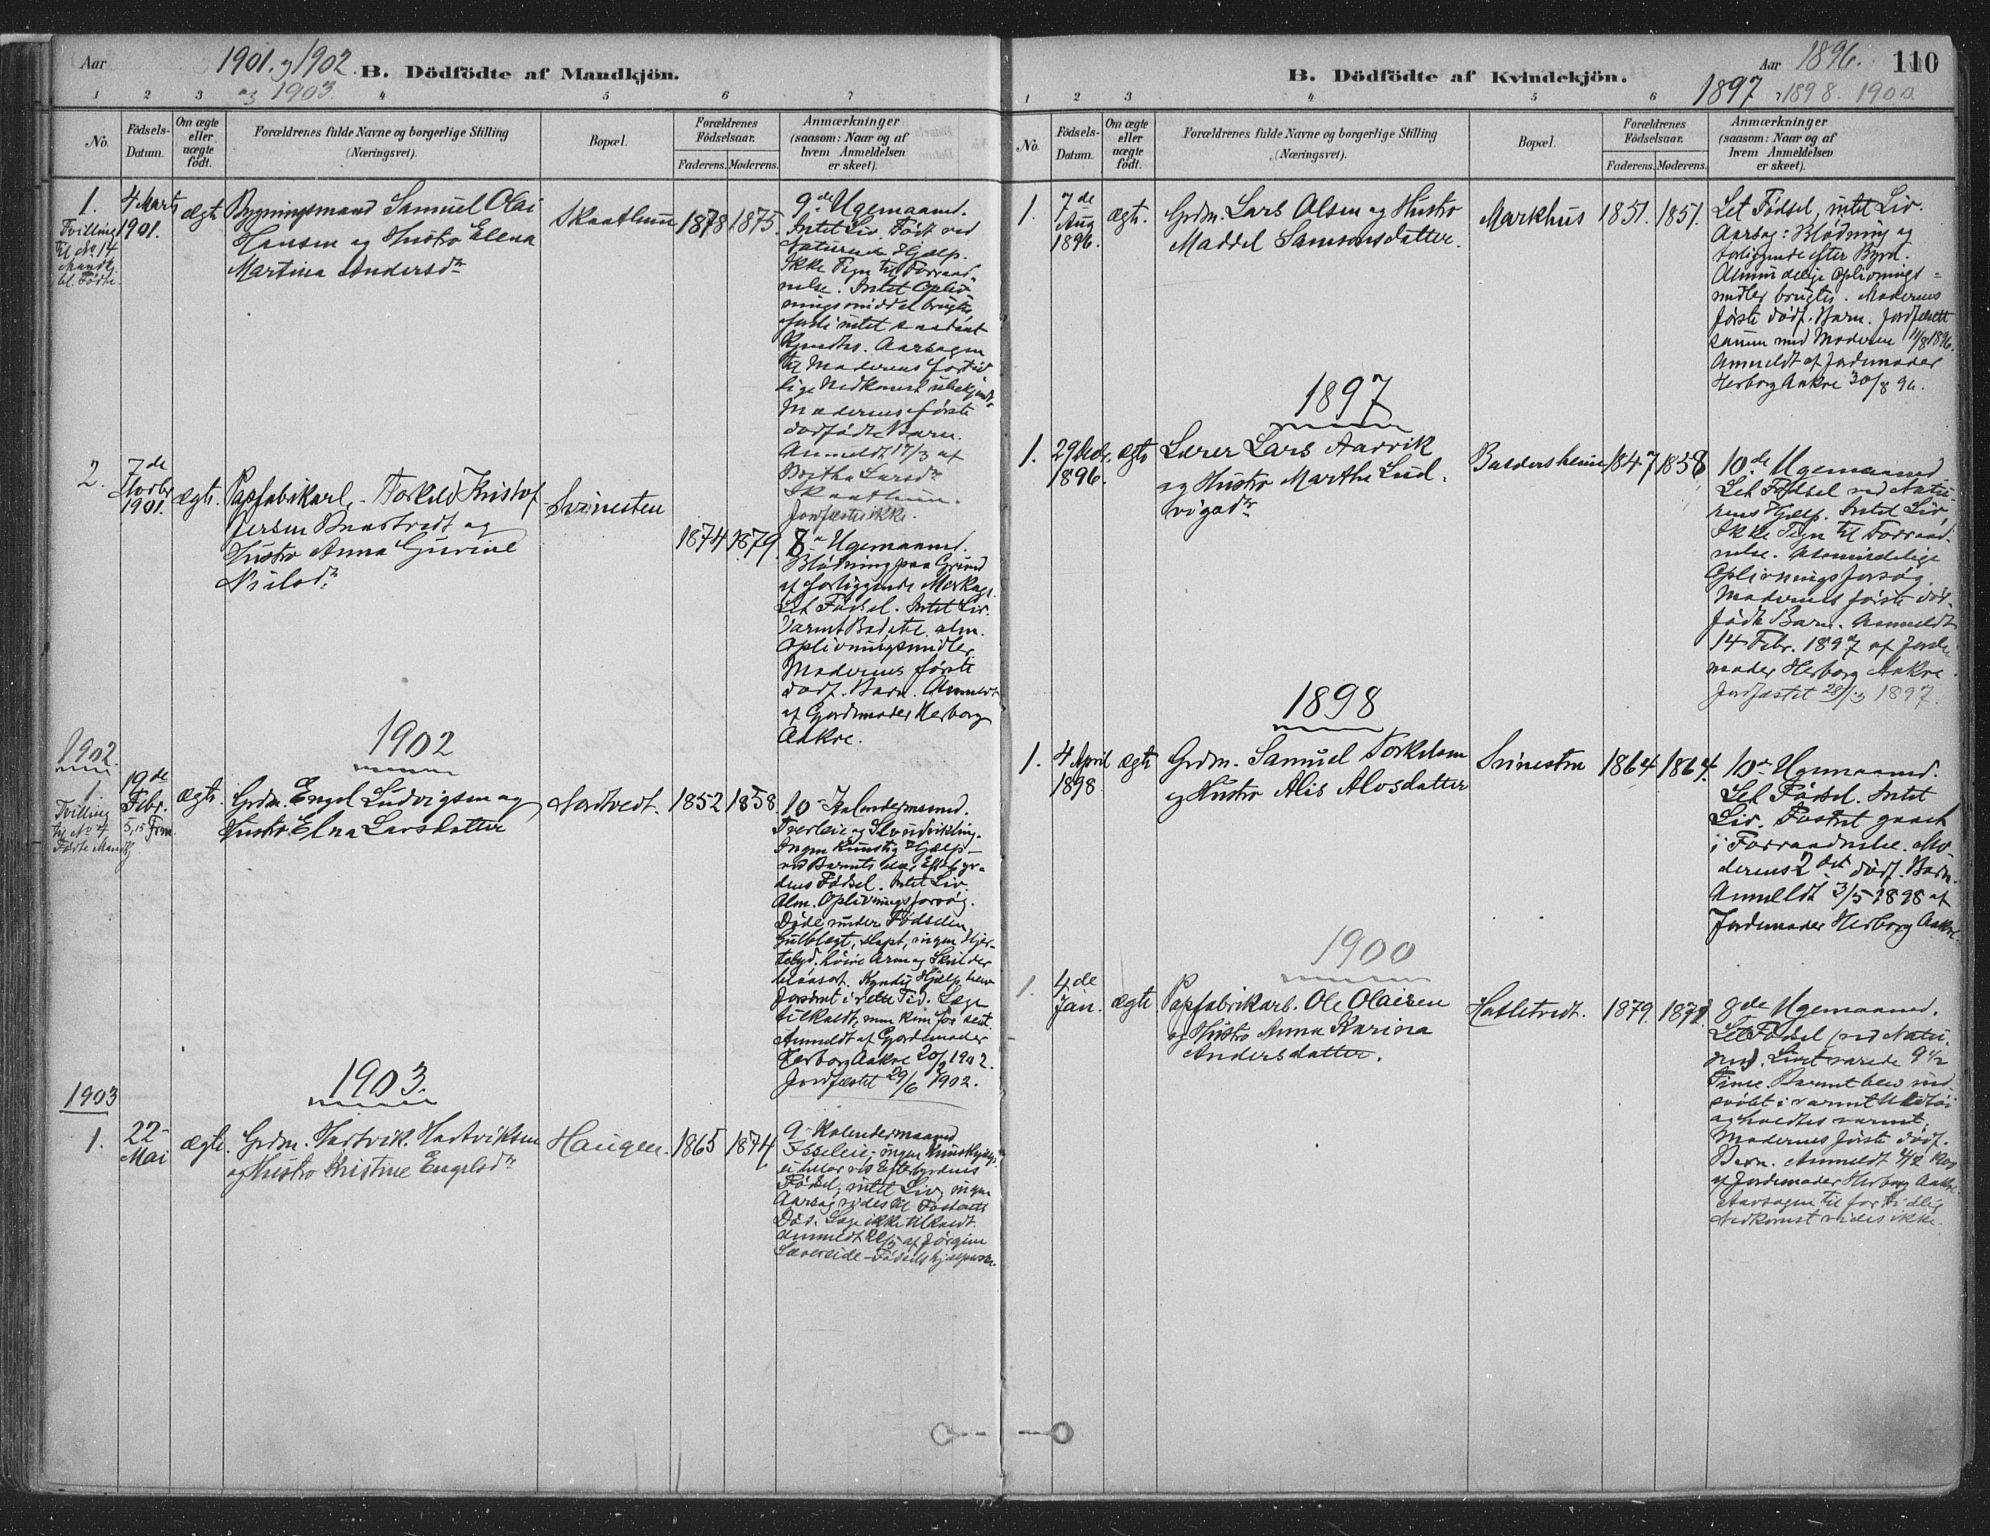 Aar 1901. og 1902
og 1903.
B. Dödfödte af Mandkjön.
1 2 3 4 5 6 7
No.
Födsels-
Datum.
Om ægte
eller
uægte
födt.
Forældrenes fulde Navne og borgerlige Stilling
(Næringsvei).
Bopæl.
Forældrenes
Födselsaar.
Faderens. Moderens.
Anmærkninger
(saasom: Naar og af
hvem Anmeldelsen
er skeet).
1.
Tvilling
til No. 14
Mandk.
lf. Fødte.
4 Marts
1901.
ægte
Bygningsmand Samuel Olai
Hansen og Hustro Elena
Martina Andersdtr
Skaathun
1878 1875.
9de Ugemaaned.
Intet Liv. Født ved
Naturens Hjælp.
Ikke Tegn til Forraad-
nelse. Intet Opliv-
ningsmiddel brugtes
fordi intet saadant
kjendtes. Aarsagen
til Moderens fortid-
lige Nedkomst ubekjendt.
Moderens første
dødfødte Barn.
Anmeldt 17/3 af
Britha Larsdtr
Skaathun.
Jordfæst. ikke.
2.
7de
Novbr
1901.
ægte.
Papfabrikarb. Torkild Kristof
fersen og
Hustro Anna Gurine
Nilsdtr
Svinesten
1874 1879.
8de Ugemaaned.
Blødning paa Grund
af forliggende Morkage.
Let Fødsel. Intet Liv.
Varmt Bad, etc. alm.
Oplivningsmidler.
Moderens første
dødf. Barn. Anmeldt
af Gjordmoder Herborg
Aakre.
1902
1902.
1.
Tvilling
til No 4
Fødte Mandkj.
19de
Febr.
5,15 Frm.
ægte.
Grdm. Engel Ludvigsen og
Hustro Elna Larsdatter
Nordtvedt.
1852 1858.
10 Kalendermaaned.
Tverleie og Selvudvikling.
Ingen kunstig Hjælp
ved Barnets eller Efterbyr-
dens Fødsel. Intet Liv.
Alm. Oplivningsforsøg.
Døde under Fødselen
Gulblegt, slapt, ingen Hjer-
telyd. høire Arm og Skulder
blaasort. Kyndig Hjælp blev
fordret i rette Tid. Læge
tilkaldt, men kom for sent.
Anmeldt af Gjordemoder
Herborg Aakre 20/2 1902.
Jordfæstet 29/6 1902.
1903.
1903
1.
22
Mai
ægte.
Grdm. Hartvik Hartviksen
og Hustro Kristine Engelsdtr
Haugen.
1865 1874
9 Kalendermaaned
Isseleie; ingen Kunsthjælp
ei heller ved Efterbyrdens
Fødsel; intet Liv, ingen
Aarsag vides til Fosterets
Død. Læge ikke tilkaldt.
Anmeldt 22/5 af Jørgine
Sævereide - Fødselshjælperske.
Aar 1896. 110
1897 1898. 1900
B. Dödfödte af Kvindekjön.
1 2 3 4 5 6
No.
Födsels-
Datum.
Om ægte
eller
uægte
födt.
Forældrenes fulde Navne og borgerlige Stilling
(Næringsvei).
Bopæl.
Forældrenes
Födselsaar.
Faderens. Moderens.
Anmærkninger
(saasom: Naar og af
hvem Anmeldelsen
er skeet).
1.
7de
Aug
1896.
ægte.
Grdm. Lars Olsen og Hustro
Maddel Samsonsdatter.
Markhus
1851. 1851.
Let Fødsel, intet Liv.
Aarsag: Blødning og
forliggende efter Byrd.
Almindelige Oplivnings-
midler brugtes. Moderens
første dødf. Barn. Jordfæstet
samm. med Moderen 11/8 1896.
Anmeldt af Jordemoder
Herborg Aakre 30/8 96.
1897
1.
29 Decbr.
1896.
ægte
Lærer Lars Aarvik
og Hustro Marthe Lud-
vigsdtr
Baldersheim
1847 1858
10de Ugemaaned
Let Fødsel ved Natu-
rens Hjælp. Intet Liv,
Ikke Tegn til Forraad-
nelse. Almindelige
Oplivningsforsøg.
Moderens første død-
fødte Barn. Anmeldt
14 Febr. 1897 af Jorde
moder Herborg Aakre.
Jordfæstet 28/3 1897.
1898
1.
4 April
1898
ægte
Grdm. Samuel Torkelsen
og Hustro Alis Alosdatter
Svinesten
1864 1864.
10de Ugemaaned.
Let Fødsel. Intet
Liv. Fostret gaaet
i Forraadnelse. Mo-
derens 2det dødf. Barn.
Anmeldt 3/5 1898 af
Jordemoder Herborg Aakre.
1900
1.
4de
Jan.
ægte
Papfabrikarb. Ole Olaisen
og Hustro Anna Karina
Andersdatter.
Hatletvedt.
1879.
8de Ugemaaned.
Let Fødsel (ved Natu-
ren). Livet varede 9 1/2
Time. Barnet blev ind
svøbt i varmt Uldtøi
og holdtes varmt.
Moderens første dødf.
Barn. Anmeldt 4/2 1900
af Jordemoder Herborg Aakre.
Aarsagen til for tidlig
Nedkomst vides ikke.